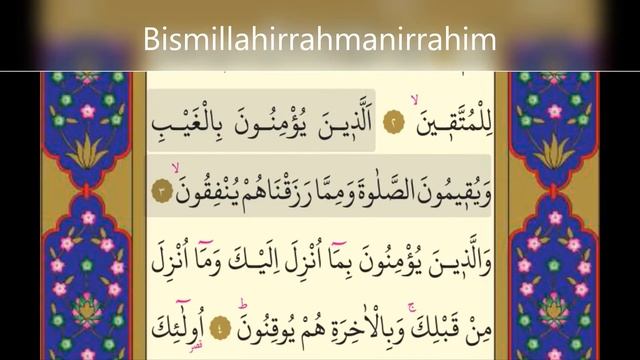 Bismillahirrahmanirrahim
لِلْمُتَّق۪ينَۙ ﴿٢﴾ اَلَّذ۪ينَ يُؤْمِنُونَ بِالْغَيْبِ
وَيُق۪يمُونَ الصَّلٰوةَ وَمِمَّا رَزَقْنَاهُمْ يُنْفِقُونَۙ ﴿٣﴾
وَالَّذ۪ينَ يُؤْمِنُونَ بِمَٓا اُنْزِلَ اِلَيْكَ وَمَٓا اُنْزِلَ
مِنْ قَبْلِكَۚ وَبِالْاٰخِرَةِ هُمْ يُوقِنُونَۜ ﴿٤﴾ اُو۬لٰٓئِكَ
قصر